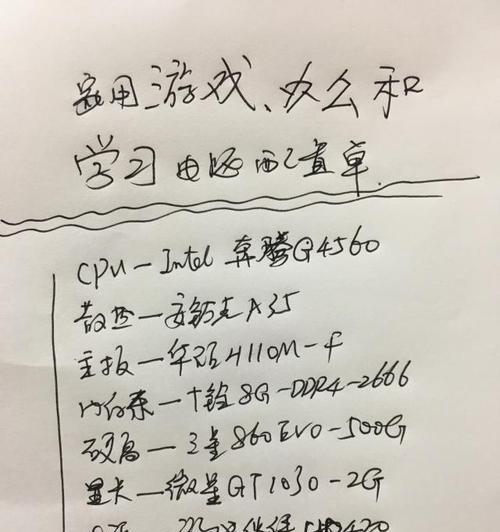 家用游戏、办公和
学习电脑配置单
CPU-Intel 奔腾G4560
散热-安钛克A35
主板-华硕H110M-F
内存条-十铨8G-DDR4-2666
硬盘-三星860EVO-500G
显卡-微星GT1030-2G